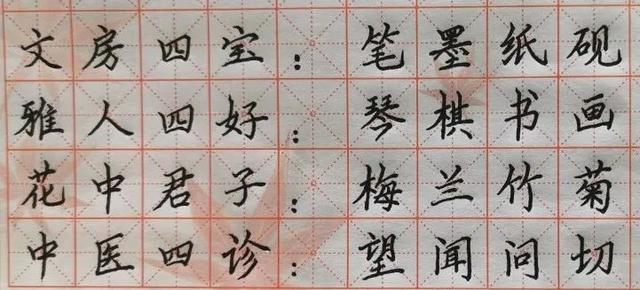 文房四宝：笔墨纸砚
雅人四好：琴棋书画
花中君子：梅兰竹菊
中医四诊：望闻问切